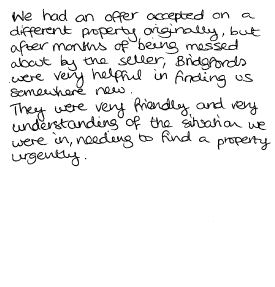 We had an offer accepted on a
different property originally, but
after months of being messed
about by the seller, Bridgfords
were very helpful in finding us
somewhere new.
They were very friendly and very
understanding of the situation we
were in, needing to find a property
urgently.